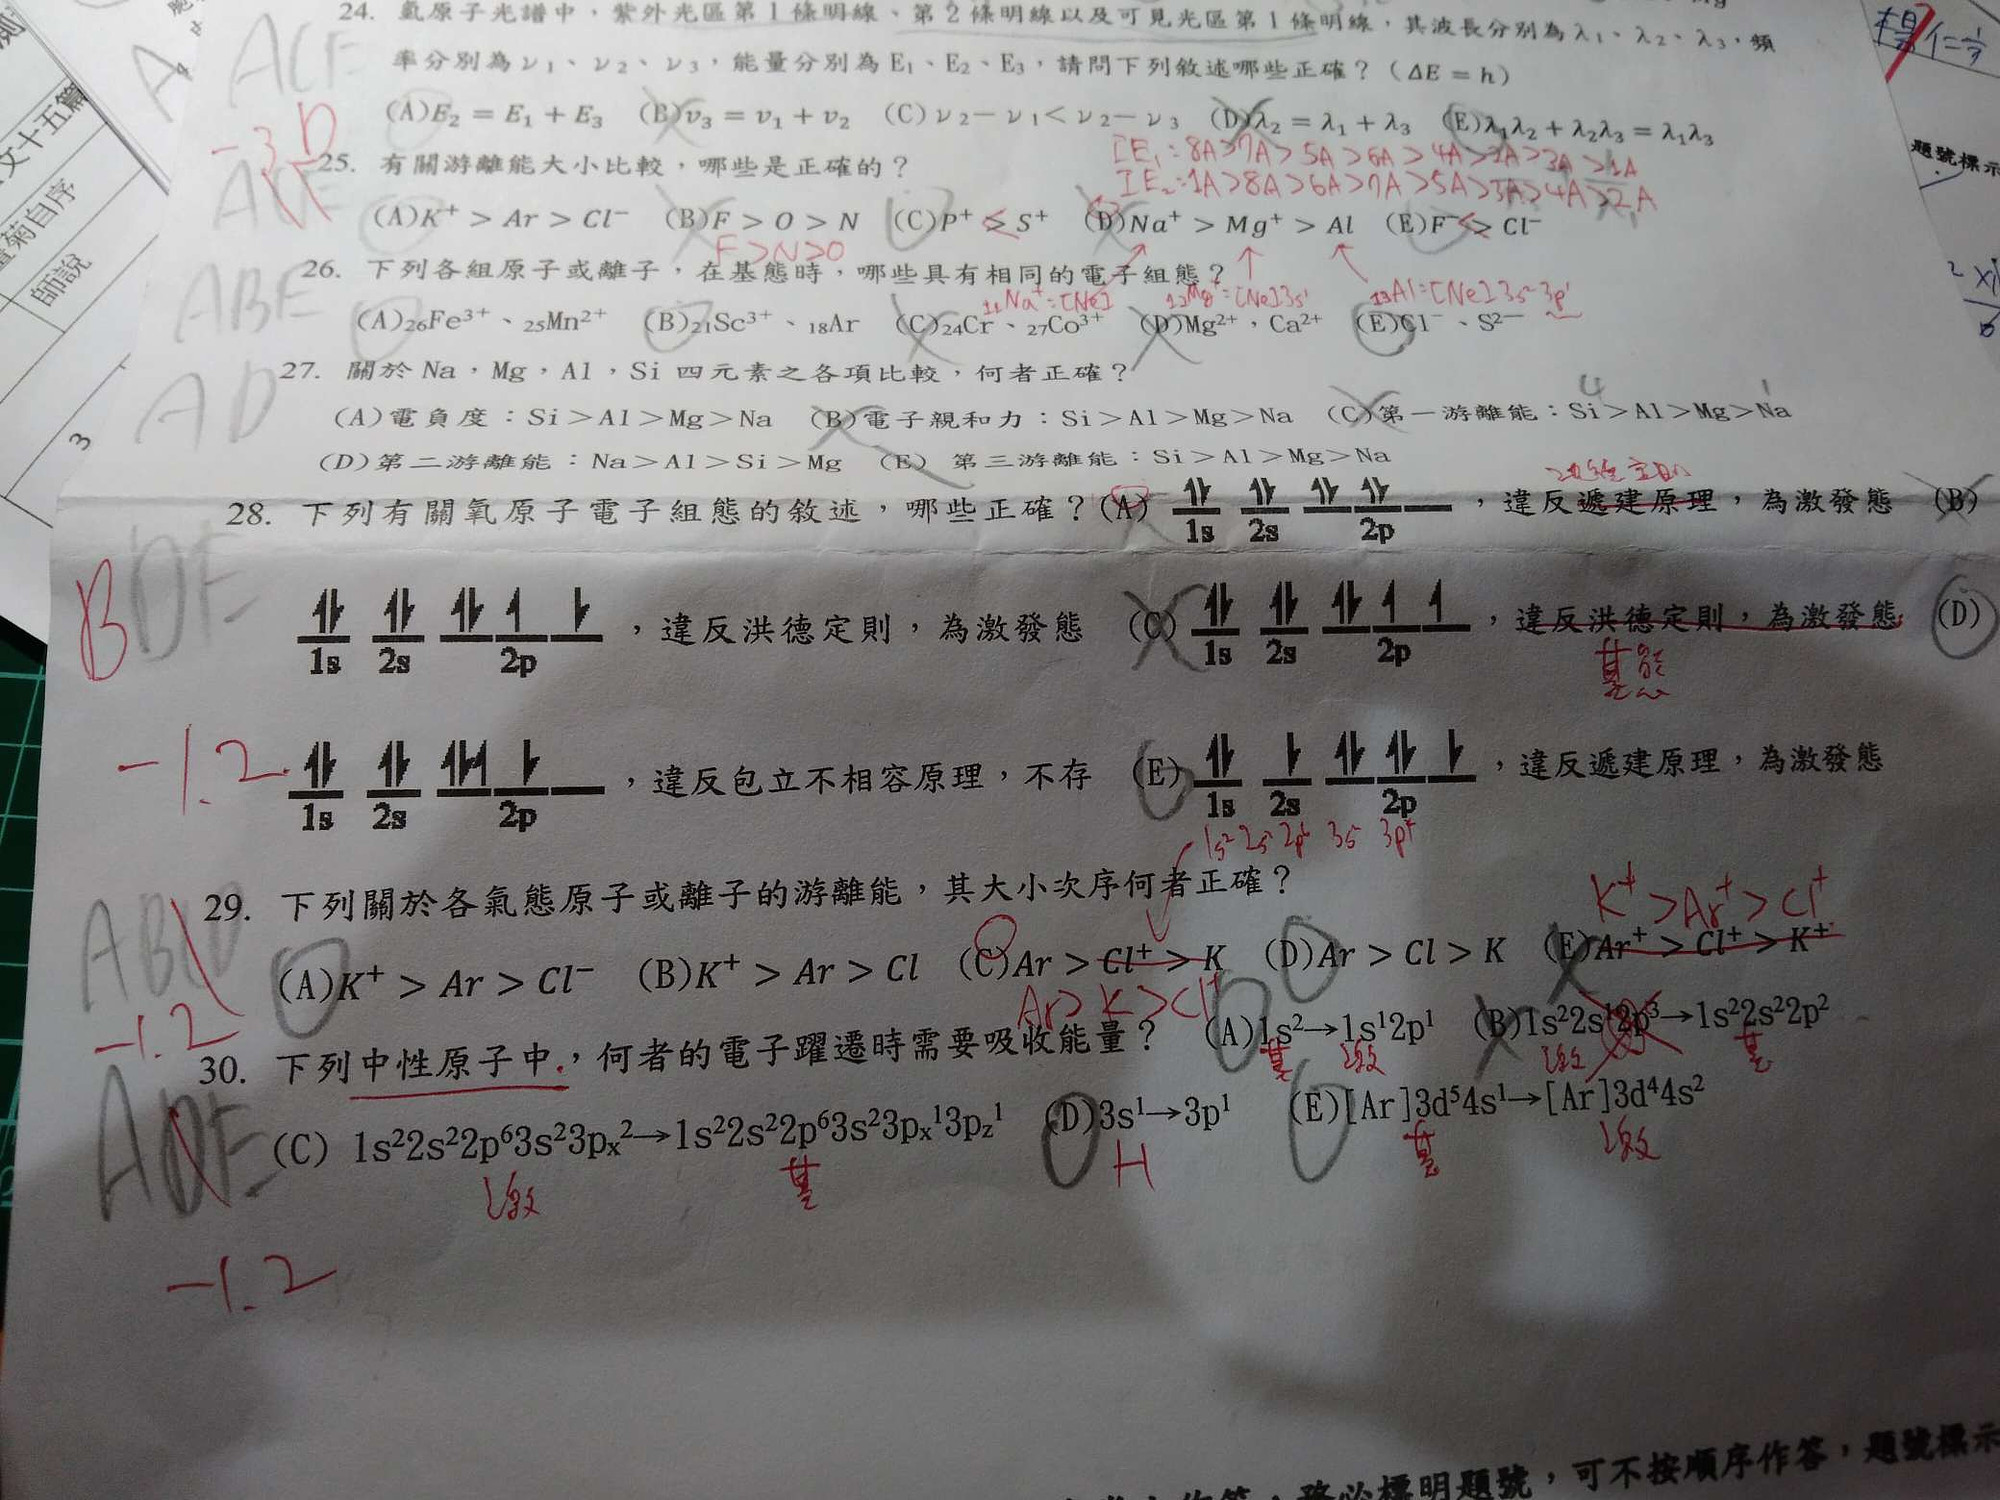 24. 氫原子光譜中，紫外光區第1條明線、第2條明線以及可見光區第1條明線，其波長分別為λ₁、λ₂、λ₃，頻
率分別為ν₁、ν₂、ν₃，能量分別為E₁、E₂、E₃，請問下列敘述哪些正確？（ΔE = h）
(A)E₂ = E₁ + E₃ (B)ν₃ = ν₁ + ν₂ (C)ν₂－ν₁＜ν₂－ν₃ (D)λ₂ = λ₁ + λ₃ (E)λ₁λ₂ + λ₂λ₃ = λ₁λ₃
ACE
-3
D
IE₁:8A>7A>5A>6A>4A>2A>3A>1A
IE₂:1A>8A>6A>7A>5A>3A>4A>2A
25. 有關游離能大小比較，哪些是正確的？
(A)K⁺ > Ar > Cl⁻ (B)F > O > N (C)P⁺ ≤ S⁺ (D)Na⁺ > Mg⁺ > Al (E)F⁻ > Cl⁻
F>N>O
26. 下列各組原子或離子，在基態時，哪些具有相同的電子組態？
ABE
₁₁Na⁺=[Ne]
₁₂Mg⁺=[Ne]3s¹
₁₃Al=[Ne]3s²3p¹
(A)₂₆Fe³⁺、₂₅Mn²⁺ (B)₂₁Sc³⁺、₁₈Ar (C)₂₄Cr、₂₇Co³⁺ (D)Mg²⁺，Ca²⁺ (E)Cl⁻、S²⁻
27. 關於Na，Mg，Al，Si四元素之各項比較，何者正確？
AD
(A)電負度：Si＞Al＞Mg＞Na (B)電子親和力：Si＞Al＞Mg＞Na (C)第一游離能：Si＞Al＞Mg＞Na
(D)第二游離能：Na＞Al＞Si＞Mg (E) 第三游離能：Si＞Al＞Mg＞Na
28. 下列有關氧原子電子組態的敘述，哪些正確？(A) 1s 2s 2p，違反遞建原理，為激發態 (B)
BDE
1s 2s 2p，違反洪德定則，為激發態 (C) 1s 2s 2p，違反洪德定則，為激發態 (D)
基態
-1.2
1s 2s 2p，違反包立不相容原理，不存 (E) 1s 2s 2p，違反遞建原理，為激發態
1s² 2s² 2p⁶ 3s² 3p⁴
29. 下列關於各氣態原子或離子的游離能，其大小次序何者正確？
K⁺>Ar⁺>Cl⁺
ABD
(A)K⁺ > Ar > Cl⁻ (B)K⁺ > Ar > Cl (C)Ar > Cl⁺ > K (D)Ar > Cl > K (E)Ar⁺ > Cl⁺ > K⁺
Ar>K>Cl⁺
-1.2
30. 下列中性原子中，何者的電子躍遷時需要吸收能量？ (A)1s²→1s¹2p¹ (B)1s²2s¹2p³→1s²2s²2p²
基 激 激 基
ADE
(C) 1s²2s²2p⁶3s²3pₓ²→1s²2s²2p⁶3s²3pₓ¹3p_z¹ (D)3s¹→3p¹ (E)[Ar]3d⁵4s¹→[Ar]3d⁴4s²
激 基 H 基 激
-1.2
題號標示
文十五篇
菊自序
師說
3
，務必標明題號，可不按順序作答，題號標示